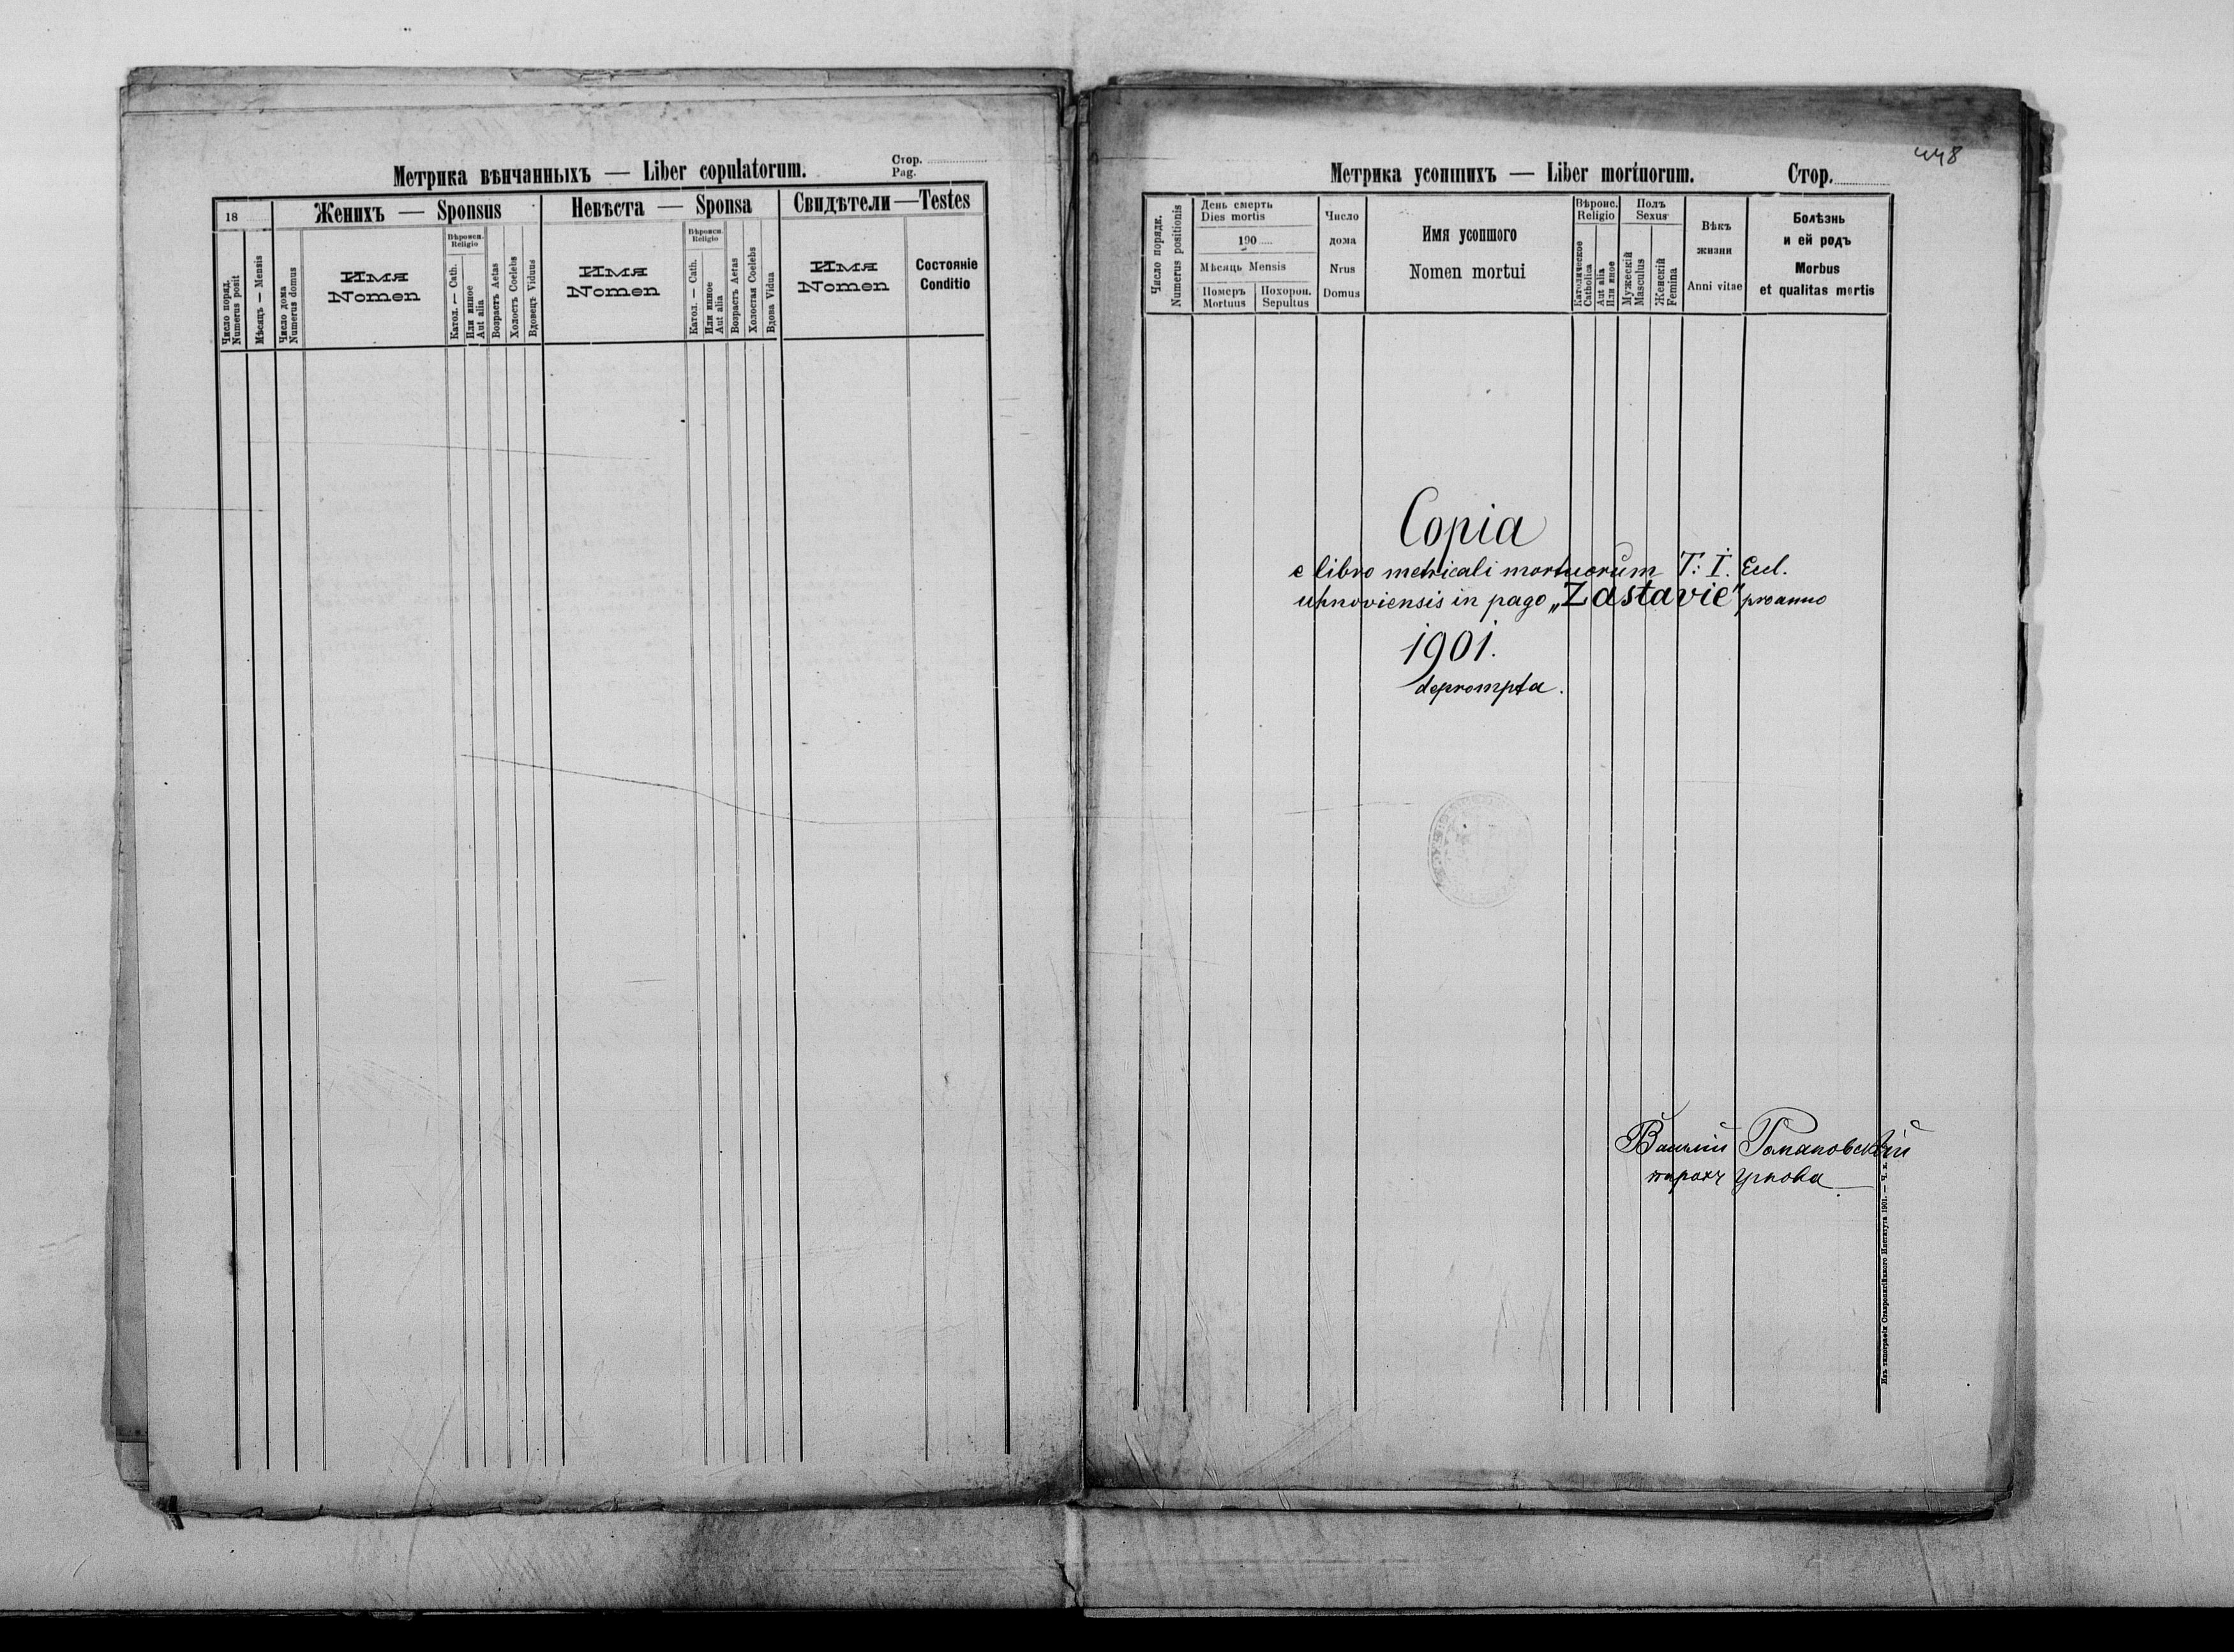 Метрика вѣнчанныхъ — Liber copulatorum.
Стор.
Pag.
18
Женихъ — Sponsus
Невѣста — Sponsa
Свидѣтели — Testes
Число поряд.
Numerus posit
Мѣсяць — Mensis
Число дома
Numerus domus
Имя
Nomen
Вѣроисп.
Religio
Катол. — Cath.
Или инное
Aut alia
Возрастъ Aetas
Холостъ Coelebs
Вдовецъ Viduus
Имя
Nomen
Вѣроисп.
Religio
Катол. — Cath.
Или инное
Aut alia
Возрастъ Aetas
Холостая Coelebs
Вдова Vidua
Имя
Nomen
Состояніе
Conditio
448
Метрика усопшихъ — Liber mortuorum.
Стор.
Число порядк.
Numerus positionis
День смерть
Dies mortis
190
Мѣсяць Mensis
Померъ
Mortuus
Похорон.
Sepultus
Число
дома
Nrus
Domus
Имя усопшого
Nomen mortui
Вѣроис.
Religio
Католическое
Catholica
Aut alia
Или иное
Полъ
Sexus
Мужескій
Masculus
Женскій
Femina
Вѣкъ
жизни
Anni vitae
Болѣзнь
и ей родъ
Morbus
et qualitas mortis
Copia
e libro metricali mortuorum T: I. Eccl.
uhnoviensis in pago „Zastavie" pro anno
1901.
deprompta.
Василій Романовскій
парохъ Угнова
Изъ типографіи Ставропигійского Института 1901. — Ч. к.